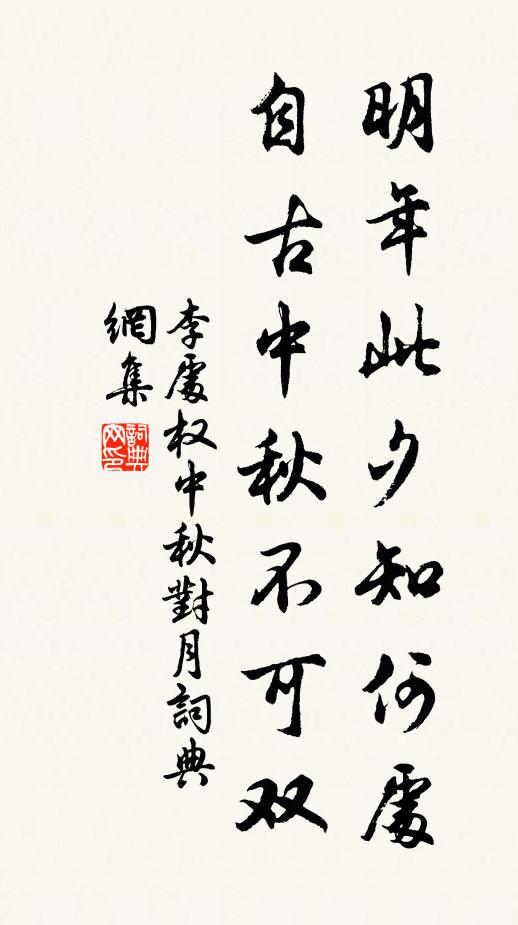 明年此夕知何處
自古中秋不可双
李處权中秋對月詞典
網集
詞典網印